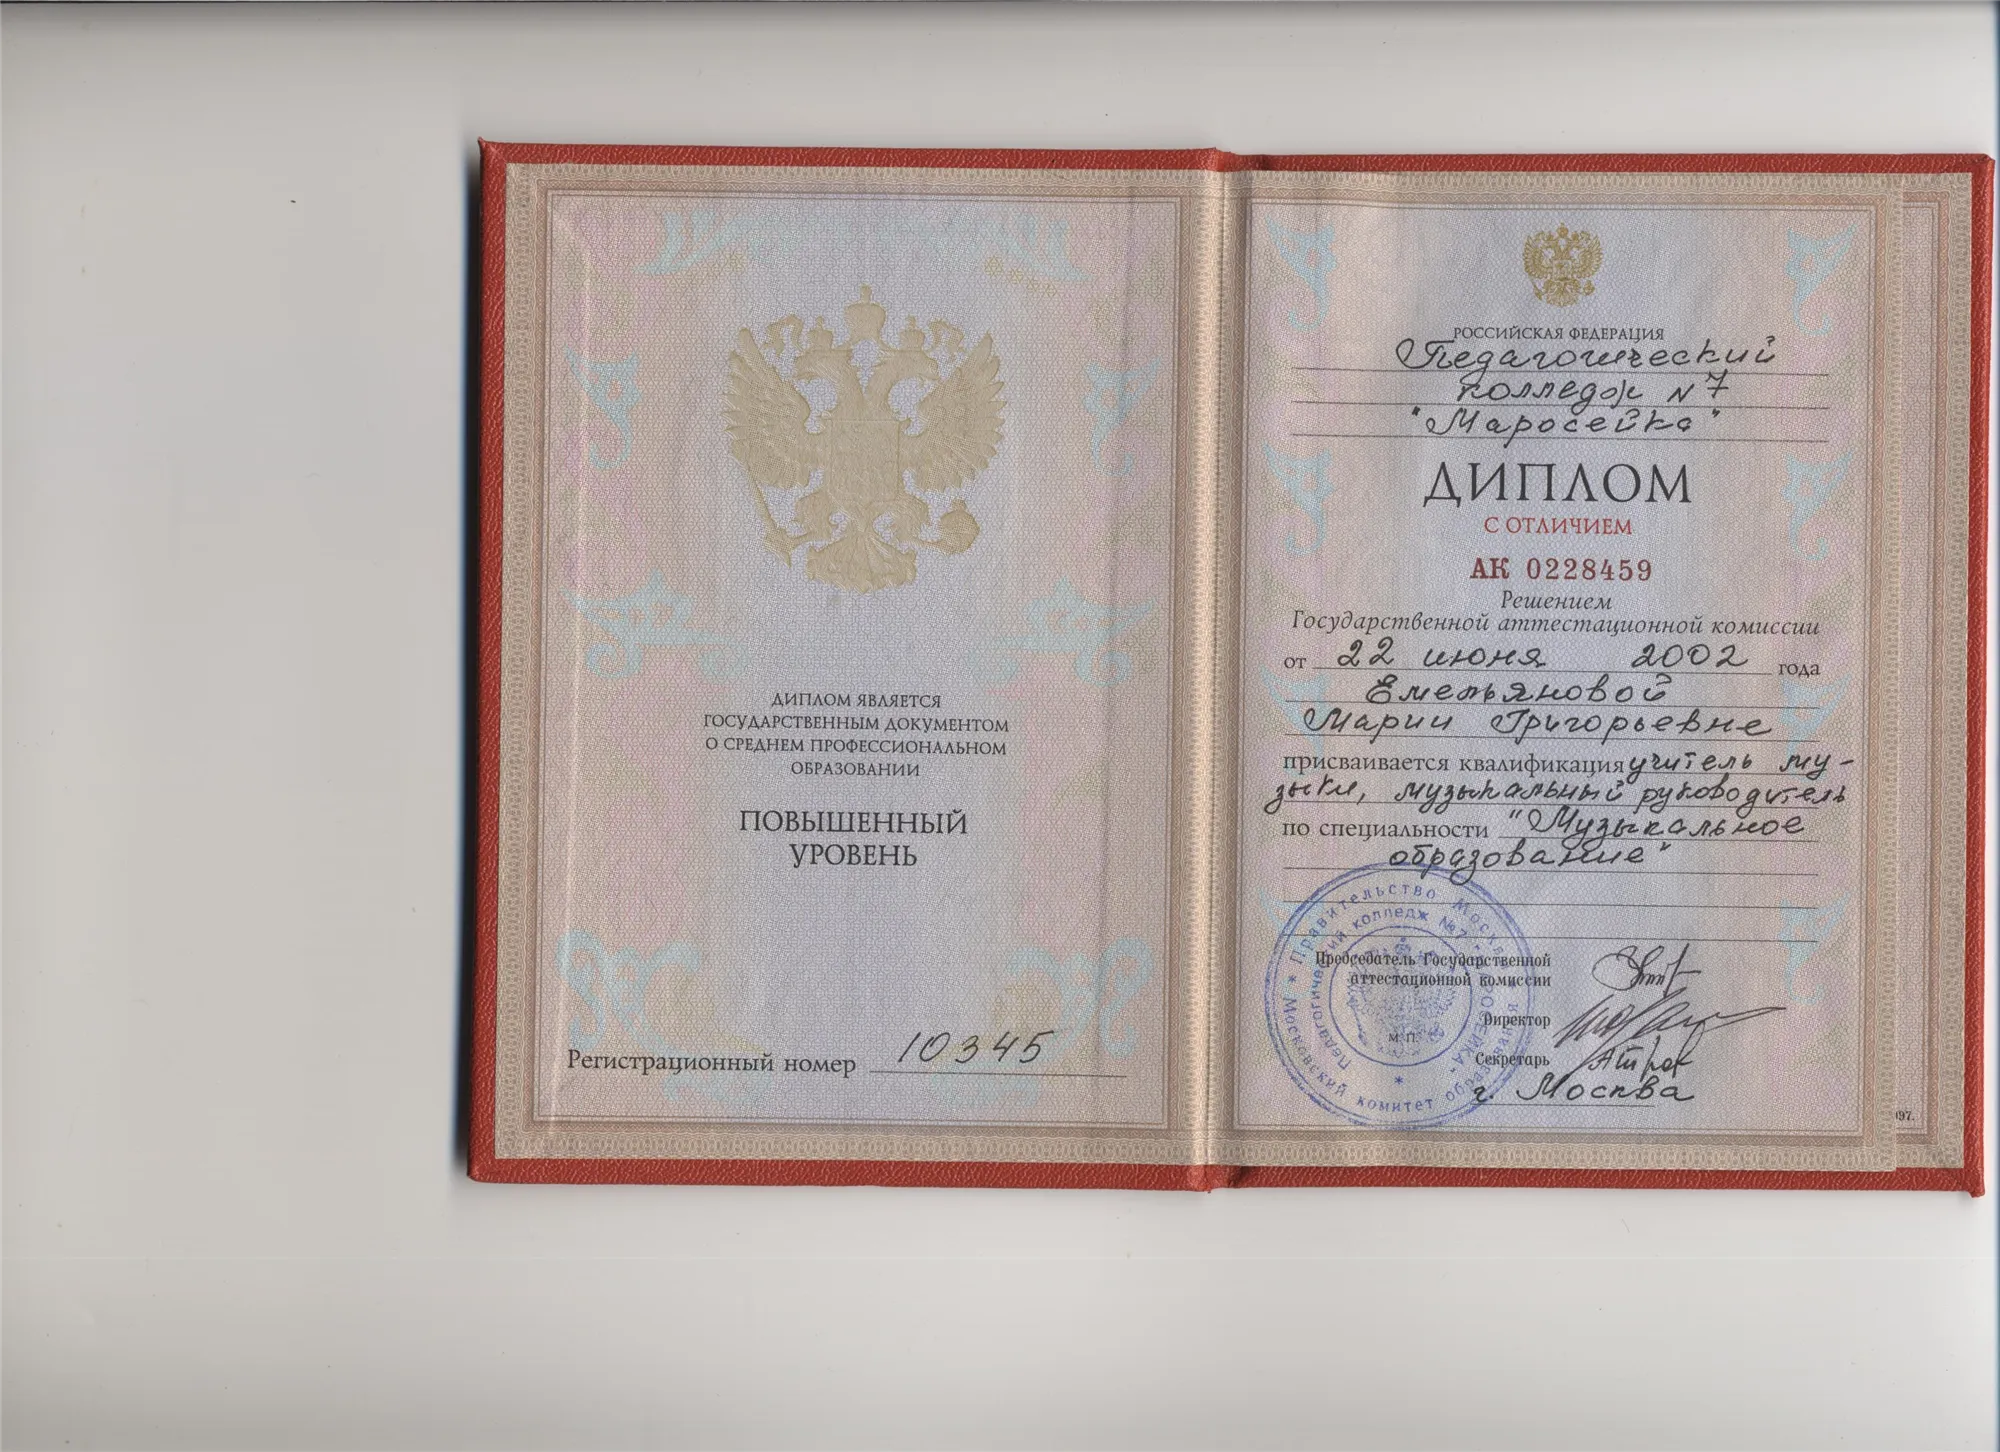 ДИПЛОМ ЯВЛЯЕТСЯ
ГОСУДАРСТВЕННЫМ ДОКУМЕНТОМ
О СРЕДНЕМ ПРОФЕССИОНАЛЬНОМ
ОБРАЗОВАНИИ
ПОВЫШЕННЫЙ
УРОВЕНЬ
Регистрационный номер 10345
РОССИЙСКАЯ ФЕДЕРАЦИЯ
Педагогический
колледж N 7
"Маросейка"
ДИПЛОМ
С ОТЛИЧИЕМ
АК 0228459
Решением
Государственной аттестационной комиссии
от 22 июня 2002 года
Емельяновой
Марии Григорьевне
присваивается квалификация учитель му-
зыки, музыкальный руководитель
по специальности "Музыкальное
образование"
Председатель Государственной
аттестационной комиссии
Директор
М.П.
Секретарь
г. Москва
* Правительство Москвы * Московский комитет образования
Педагогический колледж №7 "МАРОСЕЙКА" *
97.